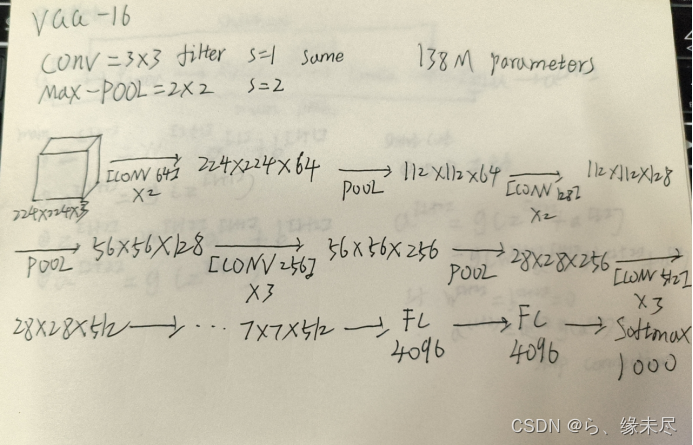 VGG-16
CONV = 3X3 filter s=1 same 138M parameters
MAX-POOL = 2X2 s=2
224X224X3 [CONV 64] X2 224X224X64 POOL 112X112X64 [CONV 128] X2 112X112X128
POOL 56X56X128 [CONV 256] X3 56X56X256 POOL 28X28X256 [CONV 512] X3
28X28X512 → ... 7X7X512 → FC 4096 → FC 4096 → Softmax 1000
CSDN @ら、缘未尽